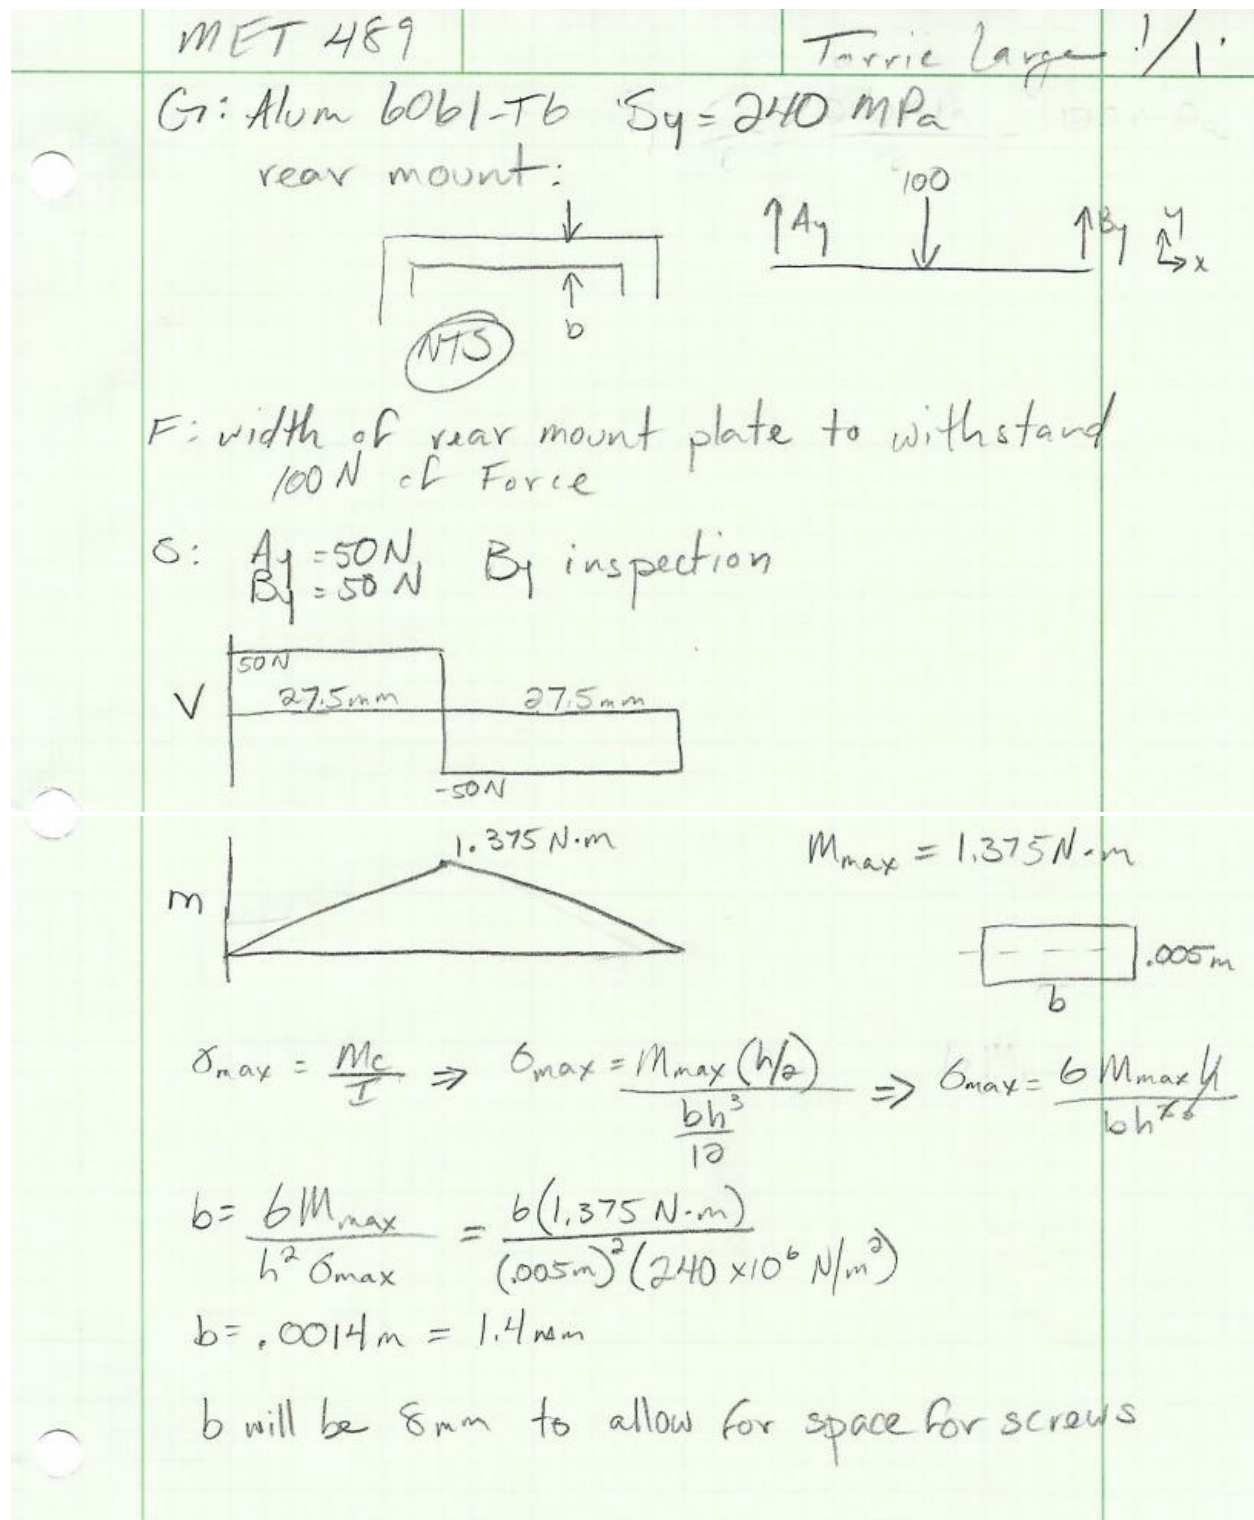 MET 489
Torrie Large 1/1
G: Alum 6061-T6 Sy = 240 MPa
rear mount:
100
Ay
By
y
x
b
NTS
F: width of rear mount plate to withstand
100 N of Force
S: Ay = 50 N, By inspection
By = 50 N
50N
V
27.5mm
27.5mm
-50N
1.375 N·m
Mmax = 1.375 N·m
m
.005m
b
σmax = Mc/I ⇒ σmax = Mmax (h/2) / (bh³/12) ⇒ σmax = 6 Mmax h / bh³
b = 6Mmax / h² σmax = 6(1.375 N·m) / (.005m)² (240 x10⁶ N/m²)
b = .0014m = 1.4mm
b will be 8mm to allow for space for screws